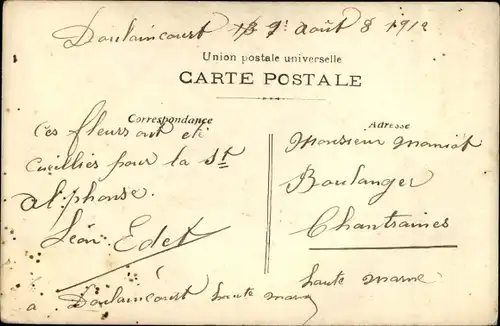 Doulaincourt 9: Août 8 1912
Union postale universelle
CARTE POSTALE
Correspondance
Ces fleurs ont été
cuillies pour la St
alphonse.
Léon Edet
a Doulaincourt haute marne
Adresse
Monsieur Maniot
Boulanger
Chantraines
haute marne